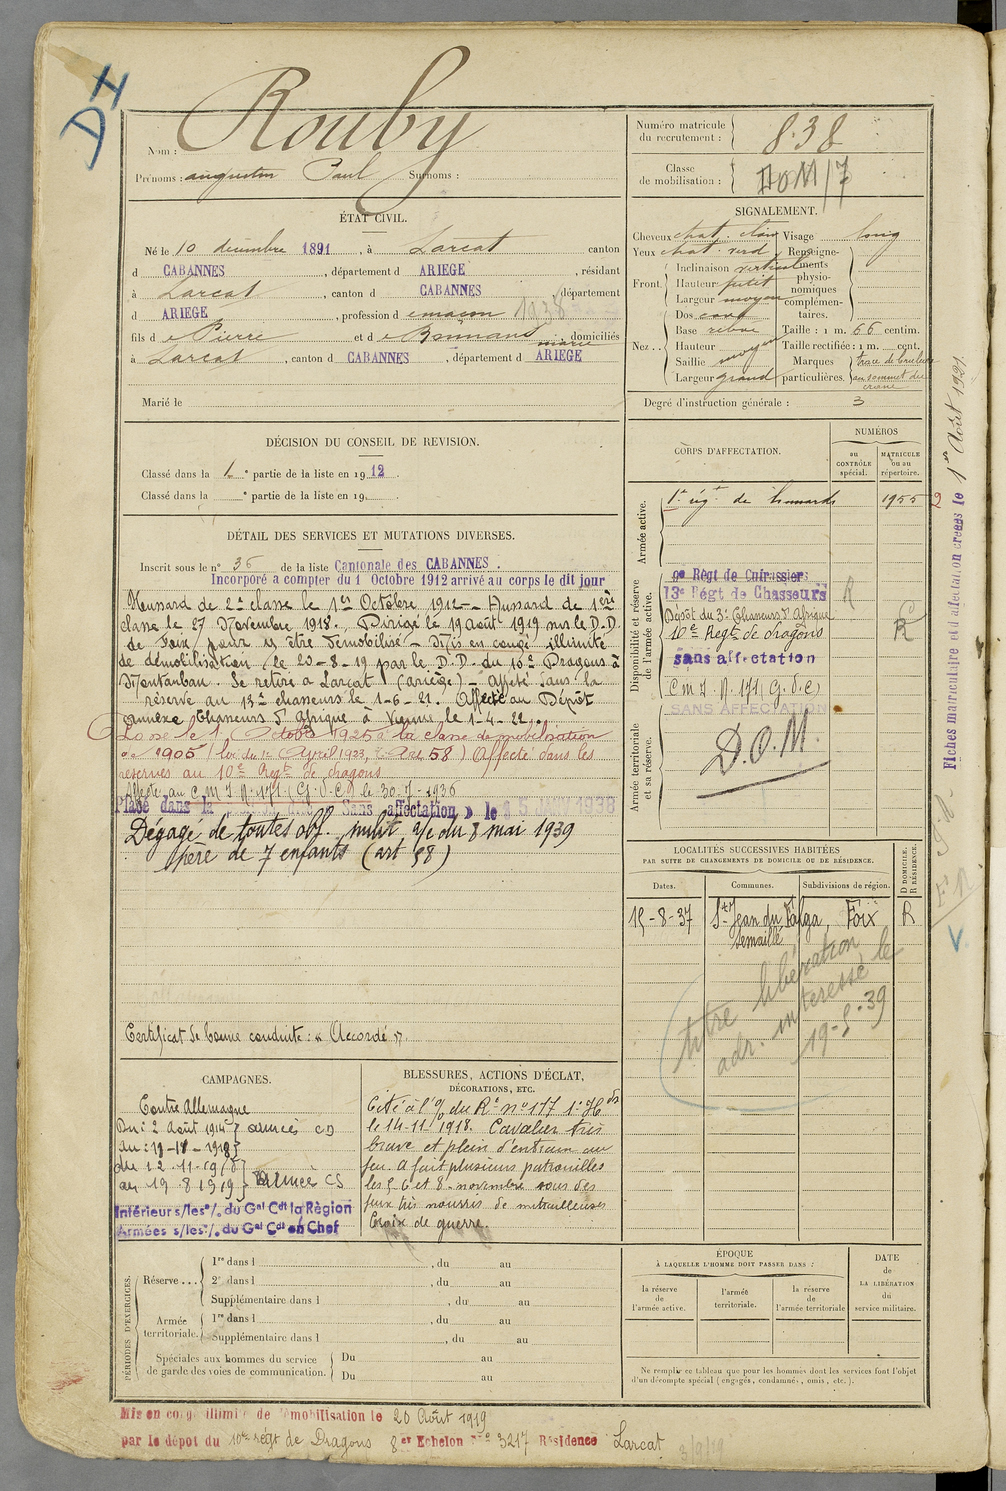 DI
Nom : Rouby
Prénoms : augustin Paul Surnoms :
Numéro matricule
du recrutement :
838
Classe
de mobilisation :
DOM/7
ÉTAT CIVIL.
Né le 10 décembre 1891, à Larcat canton
d CABANNES, département d ARIEGE, résidant
à Larcat, canton d CABANNES, département
d ARIEGE, profession de maçon 1938
fils de Pierre et de Bonnans marie, domiciliés
à Larcat, canton d CABANNES, département d ARIEGE
Marié le
SIGNALEMENT.
Cheveux chat. clair Visage long
Yeux chat. verd Renseigne-
ments
physio-
nomiques
complémen-
taires.
Front. Inclinaison verticale
Hauteur petit
Largeur moyen
Nez . . Dos cave
Base relevé Taille : 1 m. 66 centim.
Hauteur Taille rectifiée : 1 m. cent.
Saillie moyen Marques trace de brulure
Largeur grand particulières. au sommet du
crane
Degré d'instruction générale : 3
DÉCISION DU CONSEIL DE REVISION.
Classé dans la 1e partie de la liste en 1912.
Classé dans la e partie de la liste en 19
DÉTAIL DES SERVICES ET MUTATIONS DIVERSES.
Inscrit sous le n° 36 de la liste Cantonale des CABANNES.
Incorporé a compter du 1 Octobre 1912 arrivé au corps le dit jour
Hussard de 2e classe le 1er Octobre 1912 - Hussard de 1ère
classe le 27 Novembre 1918. Dirigé le 19 août 1919 sur le D.D.
de Foix pour y être démobilisé - Mis en congé illimité
de démobilisation le 20-8-19 par le D.D. du 10e Dragons à
Montauban. Se retire a Larcat (ariège) - affecté dans la
réserve au 13e chasseurs le 1-6-21. Affecté au Dépôt
annexe Chasseurs d'Afrique à Vienne le 1-4-22.
Passé le 1 Octobre 1925 à la classe de mobilisation
de 1905 (loi du 1er Avril 1923, Art 58) Affecté dans les
réserves au 10e Regt de dragons
Affecté au C M I N° 171 (G.V.C) le 30-7-1936
Placé dans la Sans affectation » le 5 JANV 1938
Dégagé de toutes obl. milit a/c du 8 mai 1939
père de 7 enfants (art 58)
Certificat de bonne conduite : « Accordé »
CORPS D'AFFECTATION.
NUMÉROS
au
CONTRÔLE
spécial.
MATRICULE
ou au
répertoire.
Armée active.
1er rég.t de hussards 1955 2
Disponibilité et réserve
de l'armée active.
9e Régt de Cuirassiers
13e Régt de Chasseurs R
Dépôt du 3e Chasseurs d'Afrique
10e Regt de dragons R
sans affectation
C M I. N. 171 (G.V.C)
SANS AFFECTATION
Armée territoriale
et sa réserve.
D.O.M.
Fiches matriculaire et d'affectation créées le 1er Août 1921.
LOCALITÉS SUCCESSIVES HABITÉES
PAR SUITE DE CHANGEMENTS DE DOMICILE OU DE RÉSIDENCE.
Dates. Communes. Subdivisions de région.
D DOMICILE.
R RÉSIDENCE.
15-8-37 St Jean du Falga, Foix R
titre libération
adr. intéressé le
19-5-39
CAMPAGNES.
Contre Allemagne
Du : 2 août 1914
au : 11-11-1918 armées CD
du 12.11.1918
au 19 8 1919 armée CS
Intérieur s/les °/. du Gal Cdt la Région
Armées s/les °/. du Gal Cdt en Chef
BLESSURES, ACTIONS D'ÉCLAT,
DÉCORATIONS, ETC.
Cité à l'o/ du Rt n° 177 1er Hds
le 14-11-1918. Cavalier très
brave et plein d'entrain au
feu. A fait plusieurs patrouilles
les 5, 6 et 8 novembre sous des
feux très nourris de mitrailleuses
Croix de guerre.
PÉRIODES D'EXERCICES.
Réserve . . . 1re dans l , du au
2e dans l , du au
Supplémentaire dans l , du au
Armée
territoriale. 1re dans l , du au
Supplémentaire dans l , du au
Spéciales aux hommes du service
de garde des voies de communication. Du au
Du au
ÉPOQUE
À LAQUELLE L'HOMME DOIT PASSER DANS :
la réserve
de
l'armée active.
l'armée
territoriale.
la réserve
de
l'armée territoriale
DATE
de
LA LIBÉRATION
du
service militaire.
Ne remplir ce tableau que pour les hommes dont les services font l'objet
d'un décompte spécial (engagés, condamnés, omis, etc.).
Mis en congé illimité de démobilisation le 20 Août 1919
par le dépôt du 10e régt de Dragons 8er Echelon No 3217 Résidence Larcat 3/9/19